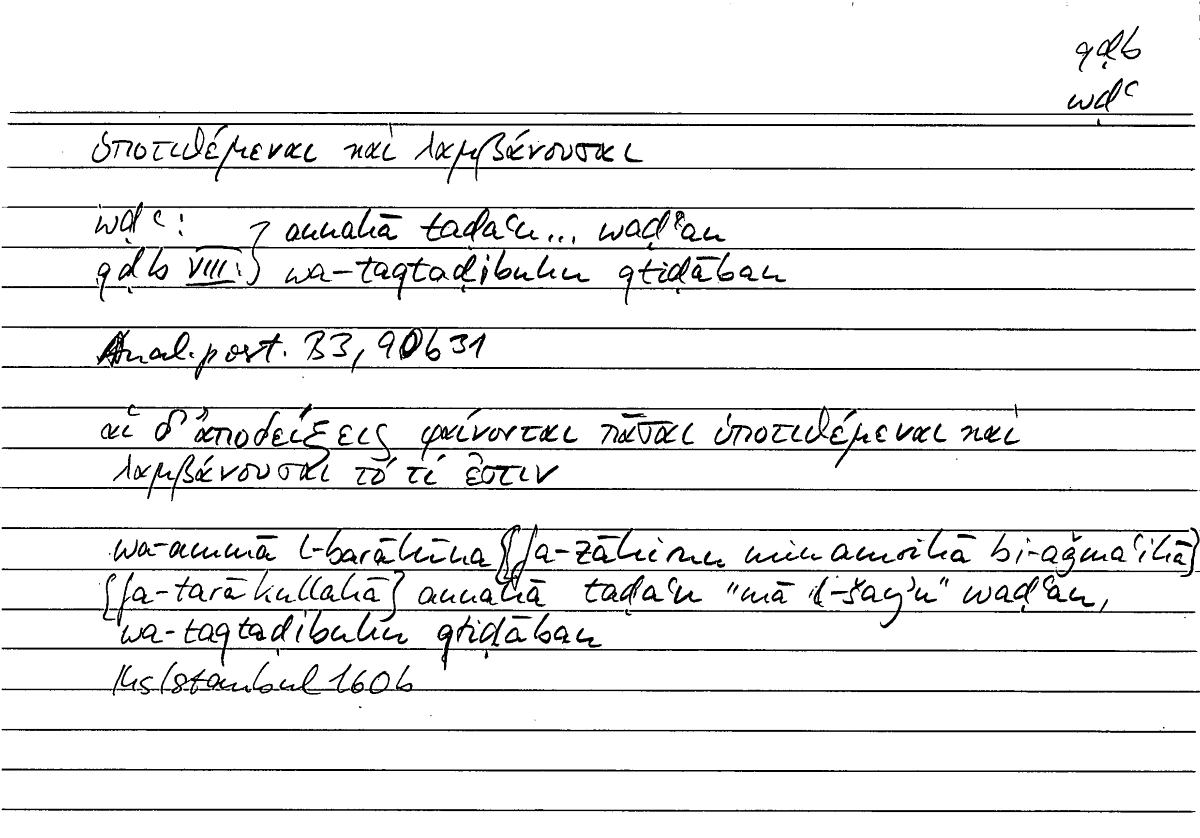 qḍb
wḍʿ
ὑποτιθέμεναι καὶ λαμβάνουσαι
wḍʿ: } annahā taḍaʿu... waḍʿan
qḍb VIII: } wa-taqtaḍibuhu qtiḍāban
Anal. post. B3, 90b31
αἱ δ' ἀποδείξεις φαίνονται πᾶσαι ὑποτιθέμεναι καὶ
λαμβάνουσαι τὸ τί ἐστιν
wa-ammā l-barāhīna {fa-ẓāhirun min amrihā bi-aǧmaʿihā}
{fa-tarā kullahā} annahā taḍaʿu "mā l-šayʾu" waḍʿan,
wa-taqtaḍibuhu qtiḍāban
Hs Istanbul 160b